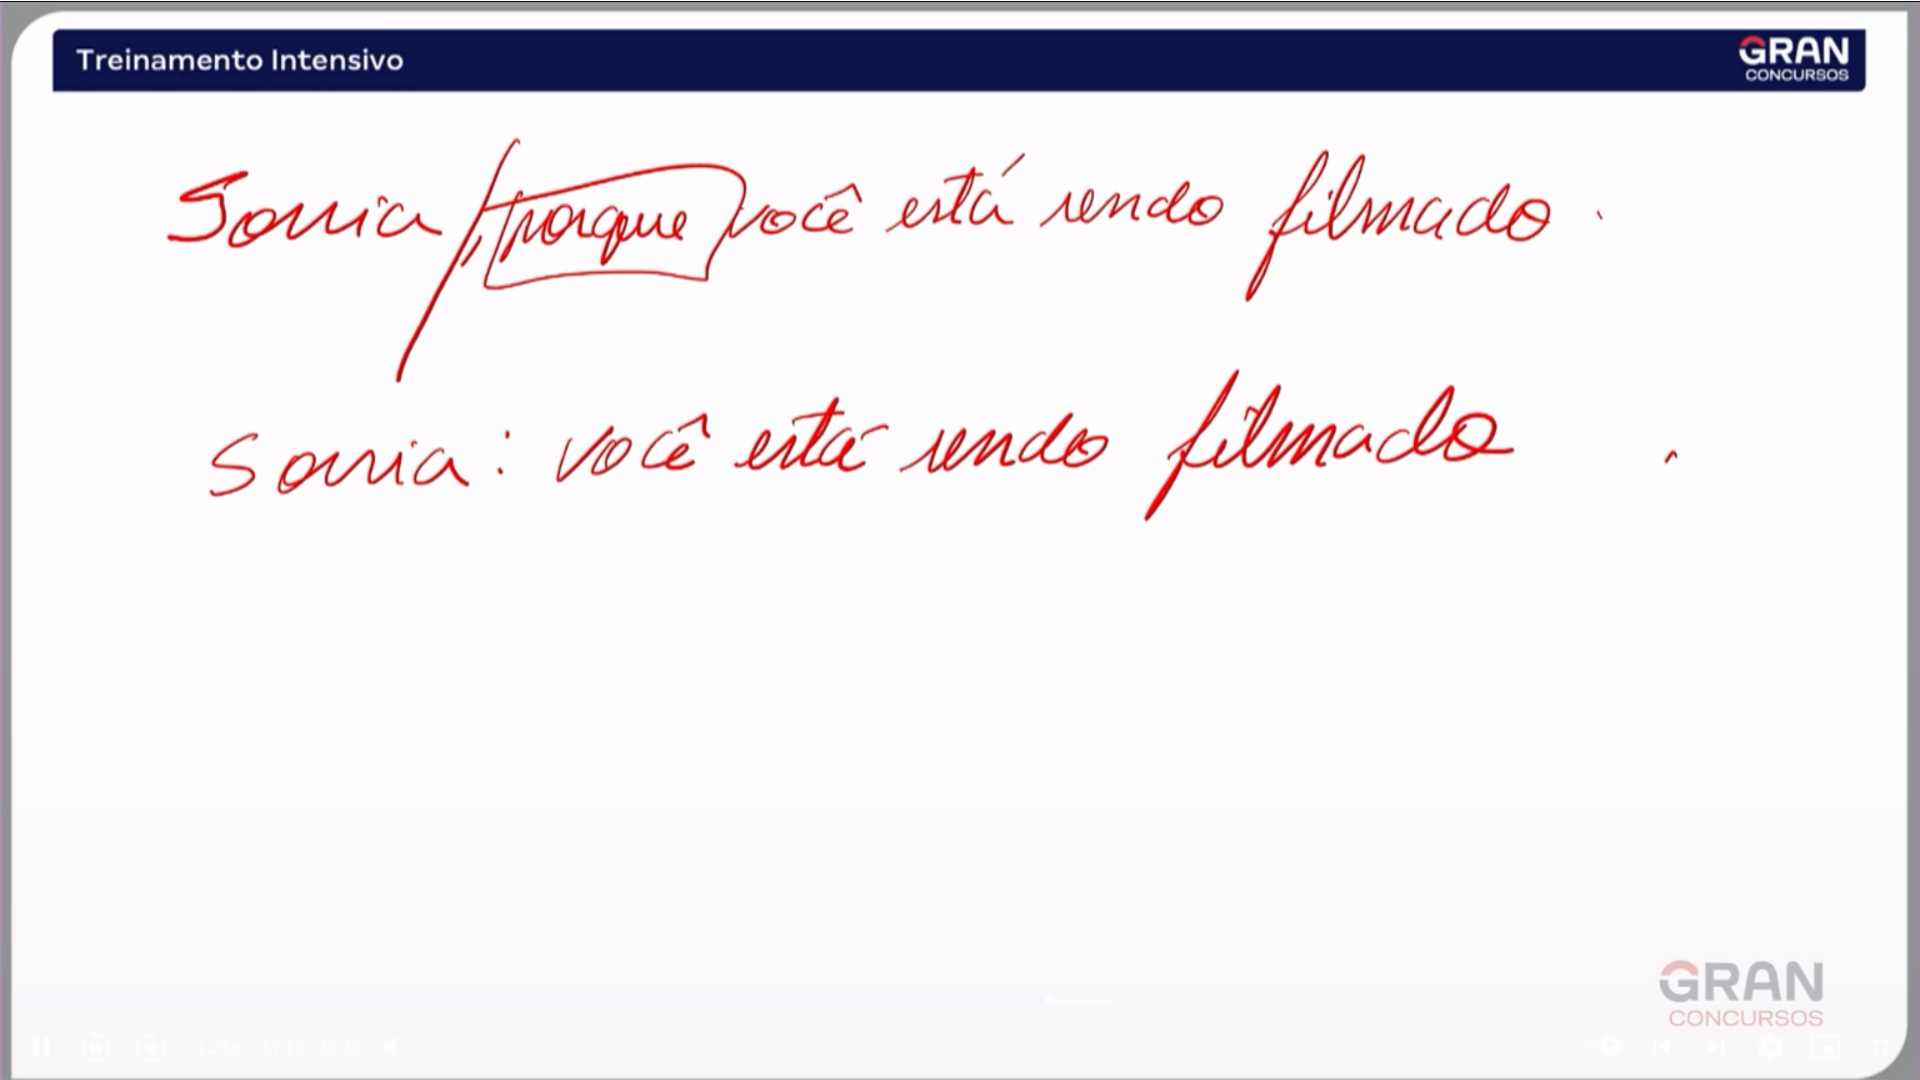 Treinamento Intensivo
GRAN
CONCURSOS
Sorria, porque você está sendo filmado.
Sorria: você está sendo filmado.
GRAN
CONCURSOS
1.25x